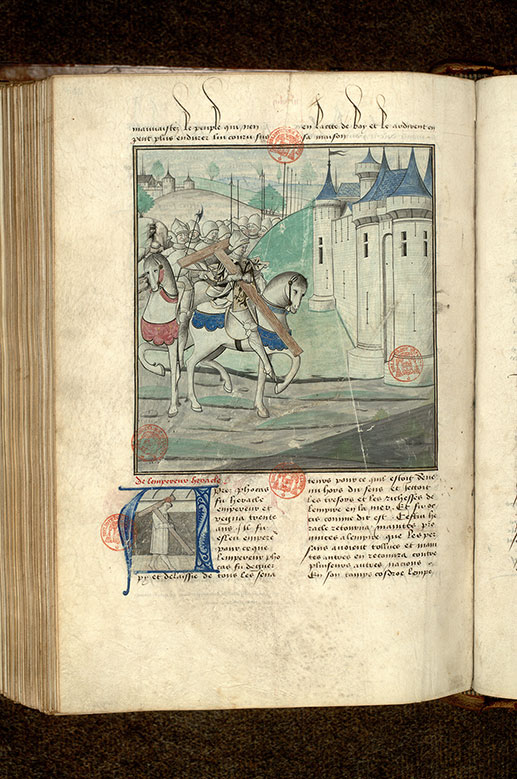 mauvaistez le peuple qui nen
peut plus endurer lui couru sus
en la cite de
et le
en
sa maison
De lempereur heracle
Apres phocas
fu heracle
empereur et
regna trente
ans il fu
esleu empere
pour ce que
lempereur pho
cas fu deguer
py et delaissie de tous les sena
teurs pour ce quil estoit deve
nu hors du sens et jettoit
les tresors et les richesses de
lempire en la mer Et fu oc
cis comme dit est Cestui he
racle retourna maintes pro
vinces a lempire que les per
sans avoient tollues et main
tes autres en retourna contre
pluseurs autres nacions
En son temps cosdroe lempe